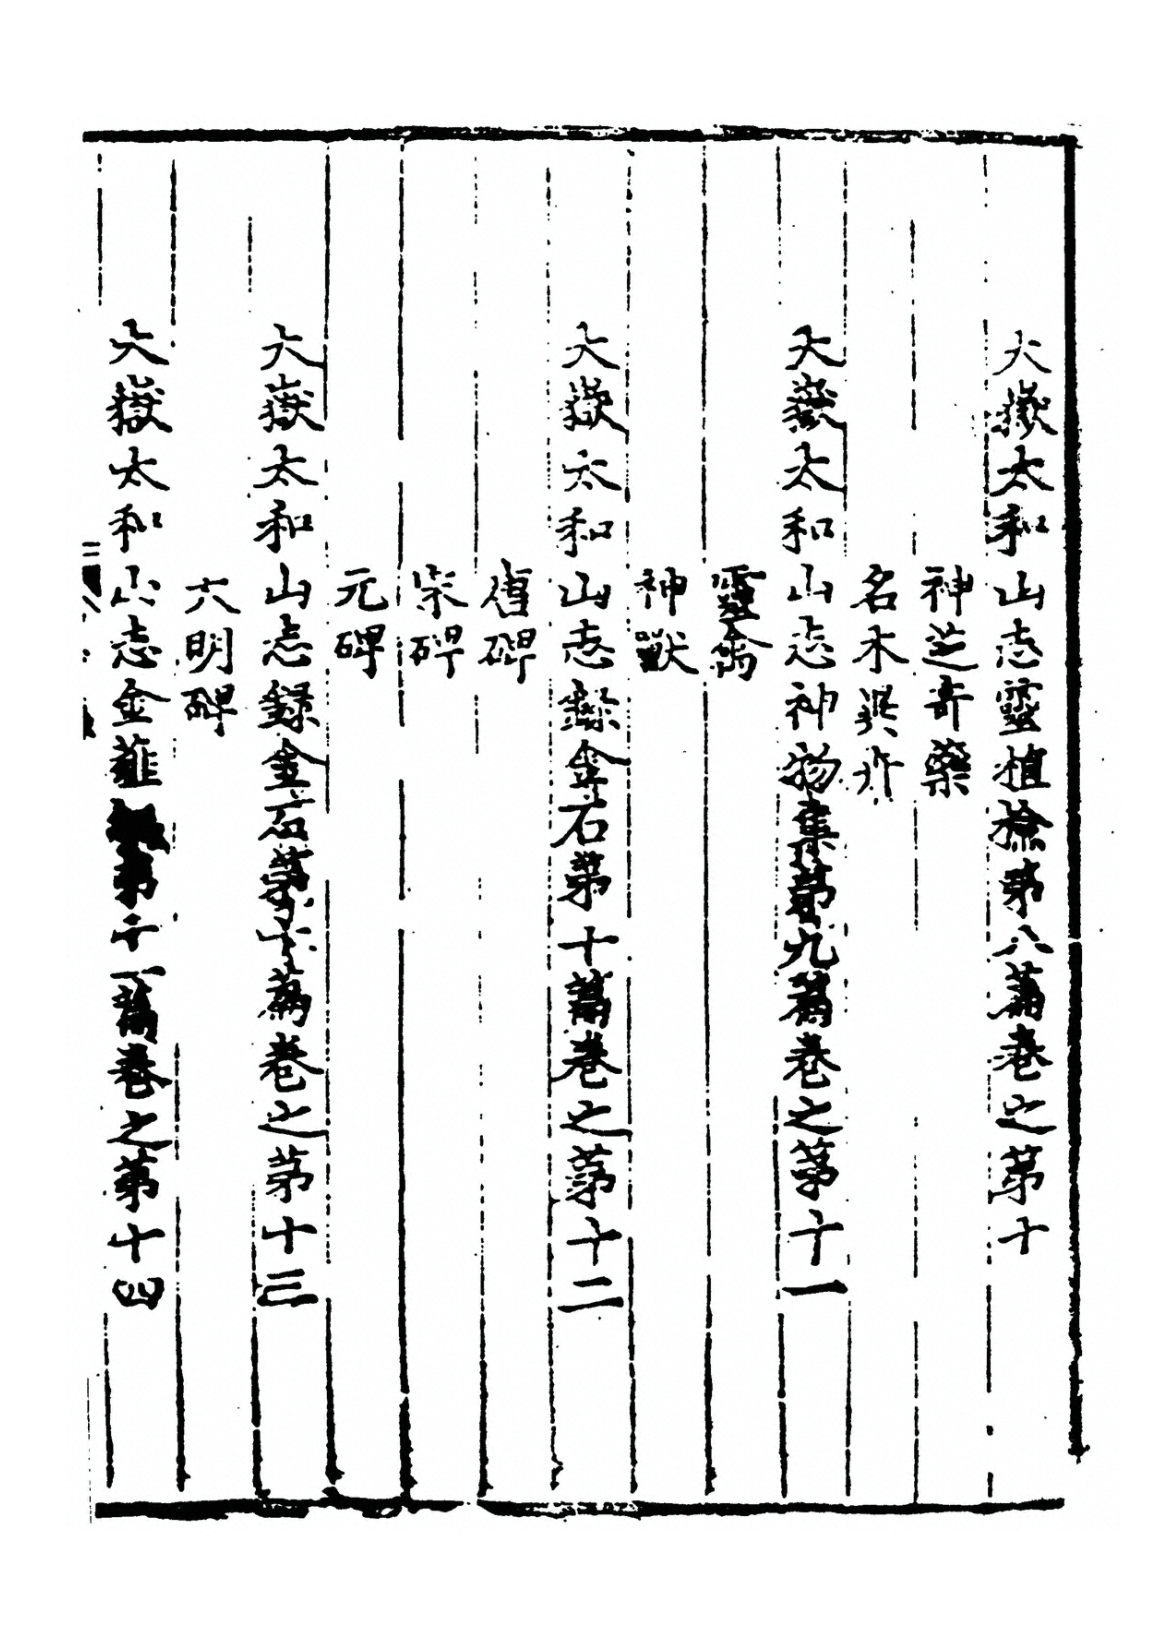 大嶽太和山志靈植檢第八篇卷之第十
神芝奇藥
名木異卉
大嶽太和山志神物集第九篇卷之第十一
靈禽
神獸
大嶽太和山志錄金石第十篇卷之第十二
唐碑
宋碑
元碑
大嶽太和山志録金石第十篇卷之第十三
大明碑
大嶽太和山志金薤第十一篇卷之第十四